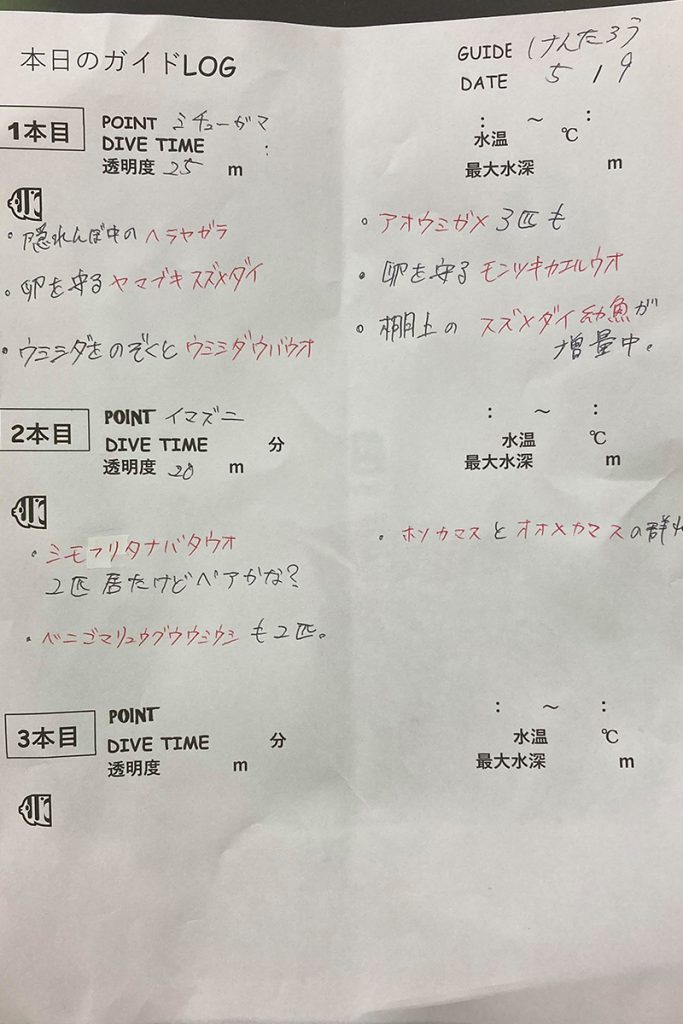 本日のガイドLOG
GUIDE けんたろう
DATE 5 19
1本目
POINT ミチューガマ
DIVE TIME :
透明度 25 m
: ~ :
水温 ℃
最大水深 m
・隠れんぼ中のヘラヤガラ
・卵を守るヤマブキスズメダイ
・ウミシダをのぞくとウミシダウバウオ
・アオウミガメ3匹も
・卵を守るモンツキカエルウオ
・棚上のスズメダイ幼魚が
増量中。
2本目
POINT イマズニ
DIVE TIME 分
透明度 20 m
: ~ :
水温 ℃
最大水深 m
・シモフリタナバタウオ
2匹居たけどペアかな?
・ベニゴマリュウグウウミウシも2匹。
・ホソカマスとオオメカマスの群れ
3本目
POINT
DIVE TIME 分
透明度 m
: ~ :
水温 ℃
最大水深 m